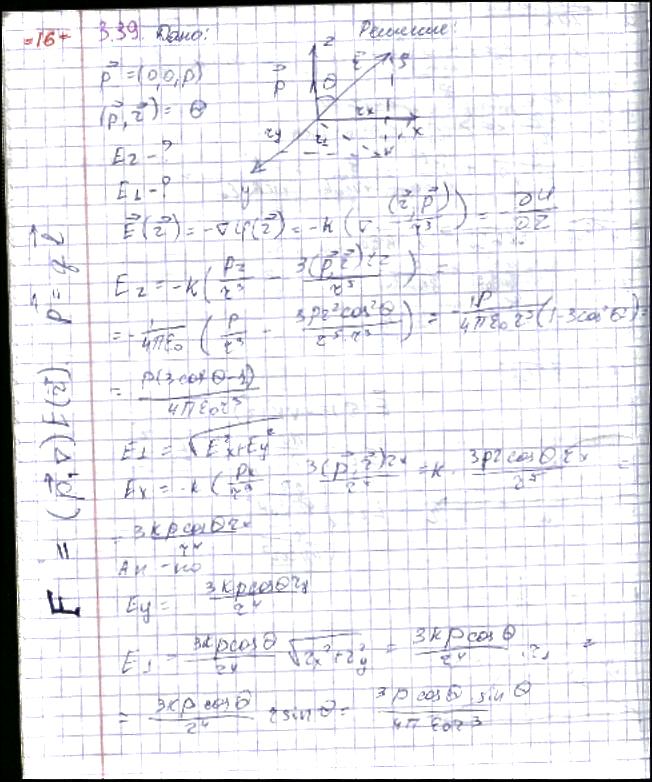 =16= 3.39. Дано: Решение:
p⃗ = (0,0,p)
(p⃗, r⃗) = θ
E_z - ?
E_⊥ - ?
z r⃗ p⃗ θ r_x x r_y y
E⃗(r⃗) = -∇φ(r⃗) = -k(∇ (r⃗,p⃗)/r³) = -∂φ/∂z
E_z = -k(p_z/r³ - 3(p⃗,r⃗)r_z/r⁵) =
= -1/4πε₀ (p/r³ - 3pr²cos²θ/r³r²) = -1p/4πε₀r³ (1-3cos²θ) =
= p(3cos²θ-1)/4πε₀r³
E_⊥ = √(E²x+E²y)
E_x = -k(p_x/r³ - 3(p⃗,r⃗)r_x/r⁵ = k · 3pr cosθ r_x/r⁵ =
= 3kp cosθ r_x/r⁴
Ан-но
E_y = 3kp cosθ r_y/r⁴
E_⊥ = 3kp cosθ/r⁴ √(r_x²+r_y²) = 3kp cosθ/r⁴ · r_⊥ =
= 3kp cosθ/r⁴ r sinθ = 3p cosθ · sinθ/4πε₀r³
F = (p⃗,∇)E(r⃗) p⃗ = q l⃗